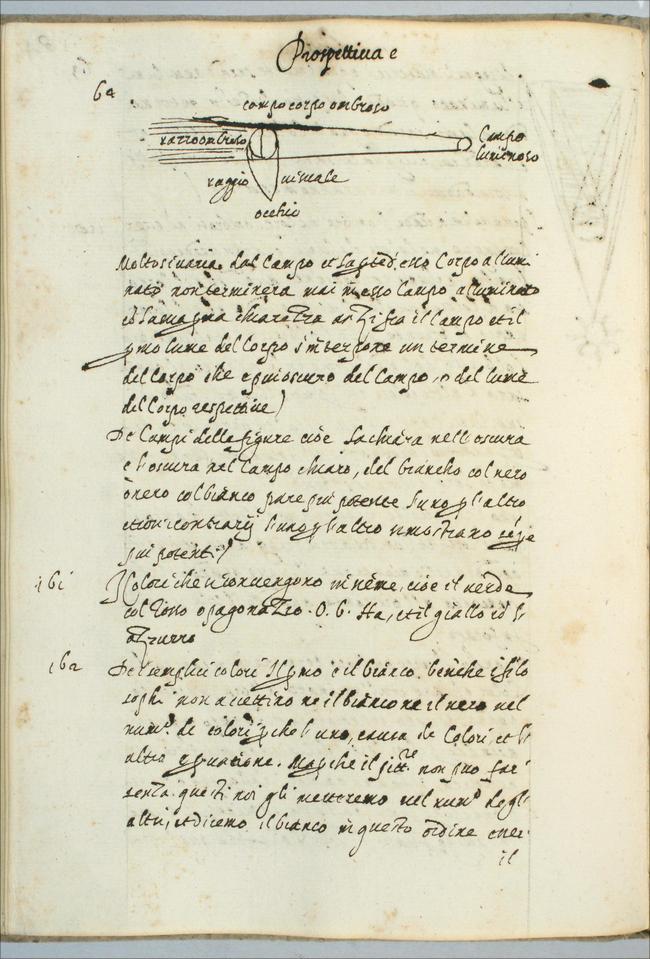 Prospettiva e
campo corpo ombroso
razzo ombroso
Campo
luminoso
raggio visuale
occhio
Molto si varia dal Campo et la del esso Corpo allumi
nato non terminera mai in esso Campo aluminato
chiarezza anzi fra il Campo et il
pmo lume del Corpo s'interpone un termine
del Corpo che e piu oscuro del Campo, o del lume
del Corpo respettive)
De Campi delle figure cioe la chiara nell oscura
e l'oscura nel Campo chiaro, del biancho col nero
o nero col bianco pare piu potente l'uno p l'altro
et i contrarij l'uno p l'altro si mostrano
piu potenti)
161
I Colori che si convengono insieme, cioe il verde
col rosso o pagonazzo. O. G. Ha, et il giallo co l'
azzurro
162
De semplici colori Il pmo e il bianco. benche i filo
sophi non accettino ne il bianco ne il nero nel
num.o de colori p che l'uno, causa de Colori et l'
altro e privatione. Ma p che il pitt.re non puo far
senza questi noi gli metteremo nel num.o degl
altri, et diremo il bianco in questo ordine esser
il